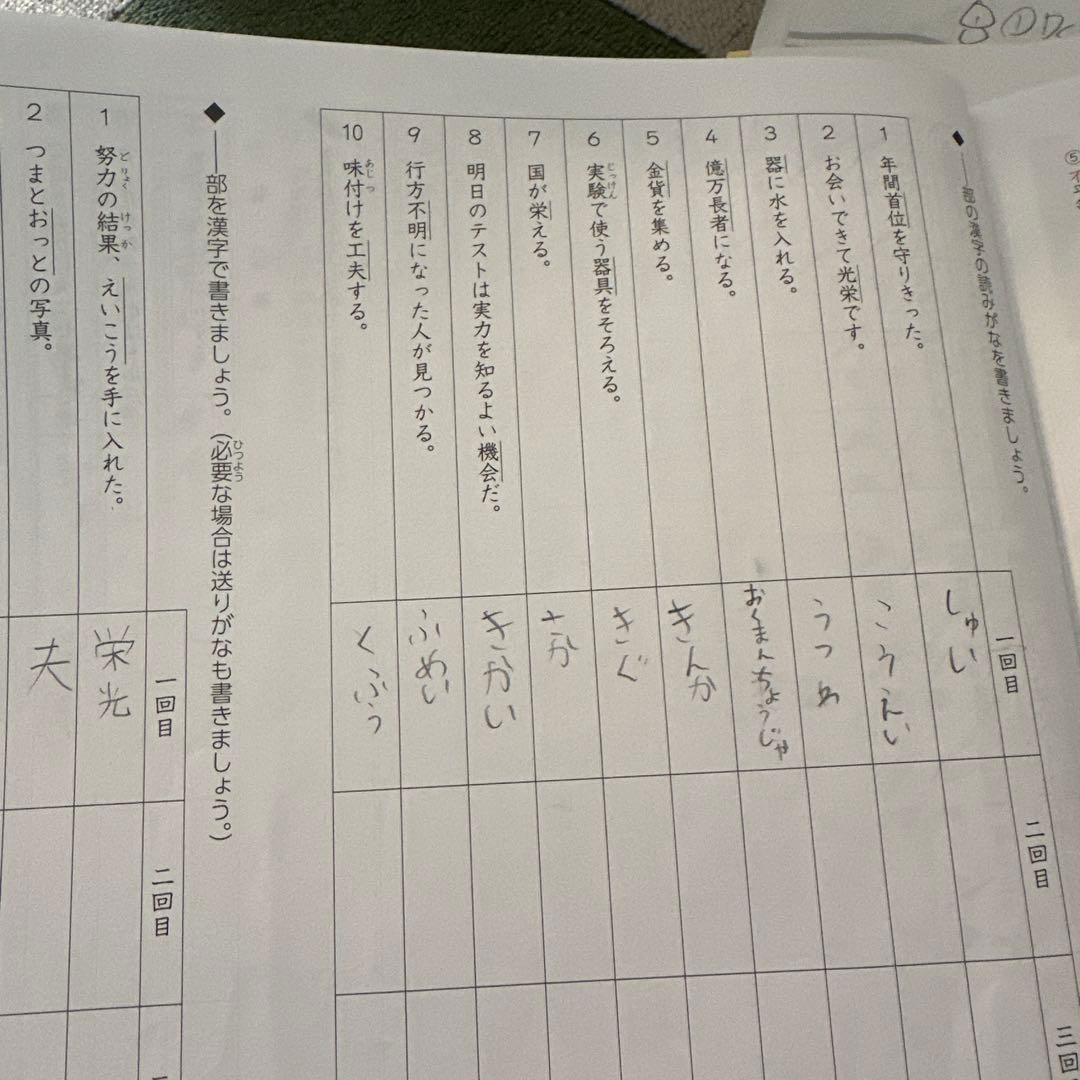 ◆——部の漢字の読みがなを書きましょう。
一回目
二回目
三回
1 年間首位を守りきった。
しゅい
2 お会いできて光栄です。
こうえい
3 器に水を入れる。
うつわ
4 億万長者になる。
おくまんちょうじゃ
5 金貨を集める。
きんか
6 実験で使う器具をそろえる。
じっけん
きぐ
7 国が栄える。
さか
8 明日のテストは実力を知るよい機会だ。
きかい
9 行方不明になった人が見つかる。
ふめい
10 味付けを工夫する。
あじつ
くふう
◆——部を漢字で書きましょう。（必要な場合は送りがなも書きましょう。）
ひつよう
一回目
二回目
1 努力の結果、えいこうを手に入れた。
どりょく けっか
栄光
2 つまとおっとの写真。
夫